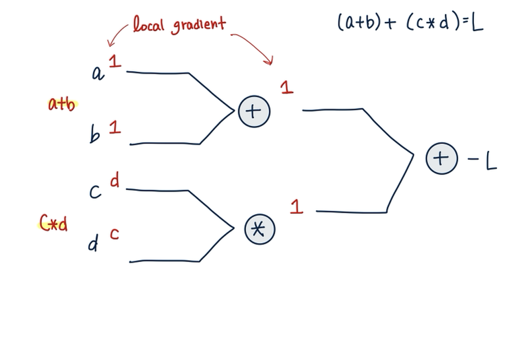 local gradient
(a+b) + (c*d) = L
a 1
1
a+b
+
b 1
+ - L
c d
1
C*d
*
d c